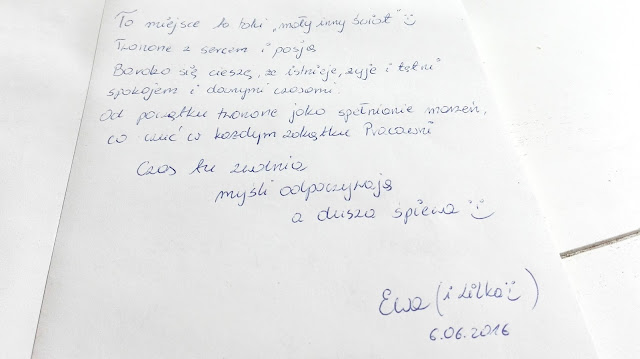 To miejsce to taki „mały inny świat” ü
Tworzone z sercem i pasją
Bardzo się cieszę, że istnieje, żyje i tętni
spokojem i dawnymi czasami.
Od początku tworzone jako spełnianie marzeń,
co czuć w każdym zakątku Pracowni
Czas tu zwalnia
myśli odpoczywają
a dusza śpiewa ü
Ewa (i Lilka ü)
6.06.2016